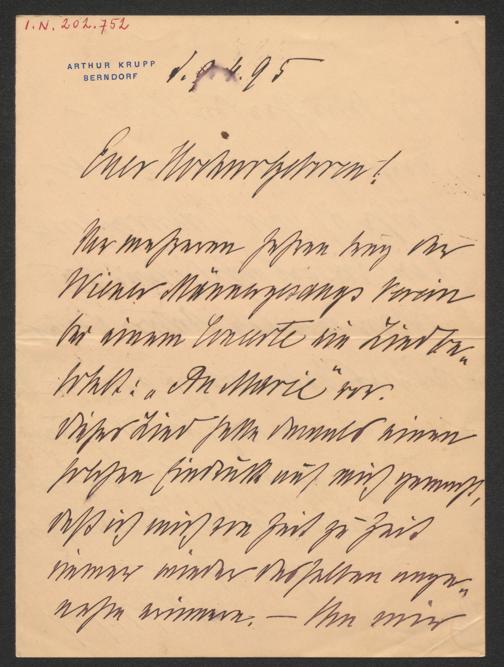 I.N. 202.752
ARTHUR KRUPP
BERNDORF
Euer Hochwohlgeboren!
Vor mehreren Jahren trug der
Wiener Männergesangs Verein
bei einem Concerte ein Lied be-
titelt: „An Marie" vor.
Dieses Lied hatte damals einen
solchen Eindruck auf mich gemacht,
daß ich mich von Zeit zu Zeit
immer wieder desselben ange-
nehm erinnere. — Um mir